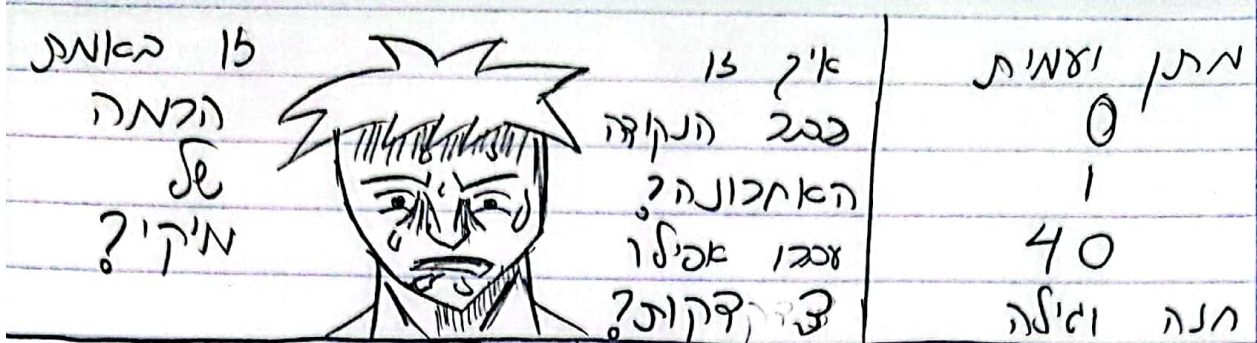 מתן יעמית
0
1
40
חנה וגילה
איך זו
כבר הנקודה
האחרונה?
עברו אפילו
דקות?
זו באמת
הרמה
של
מיקי?